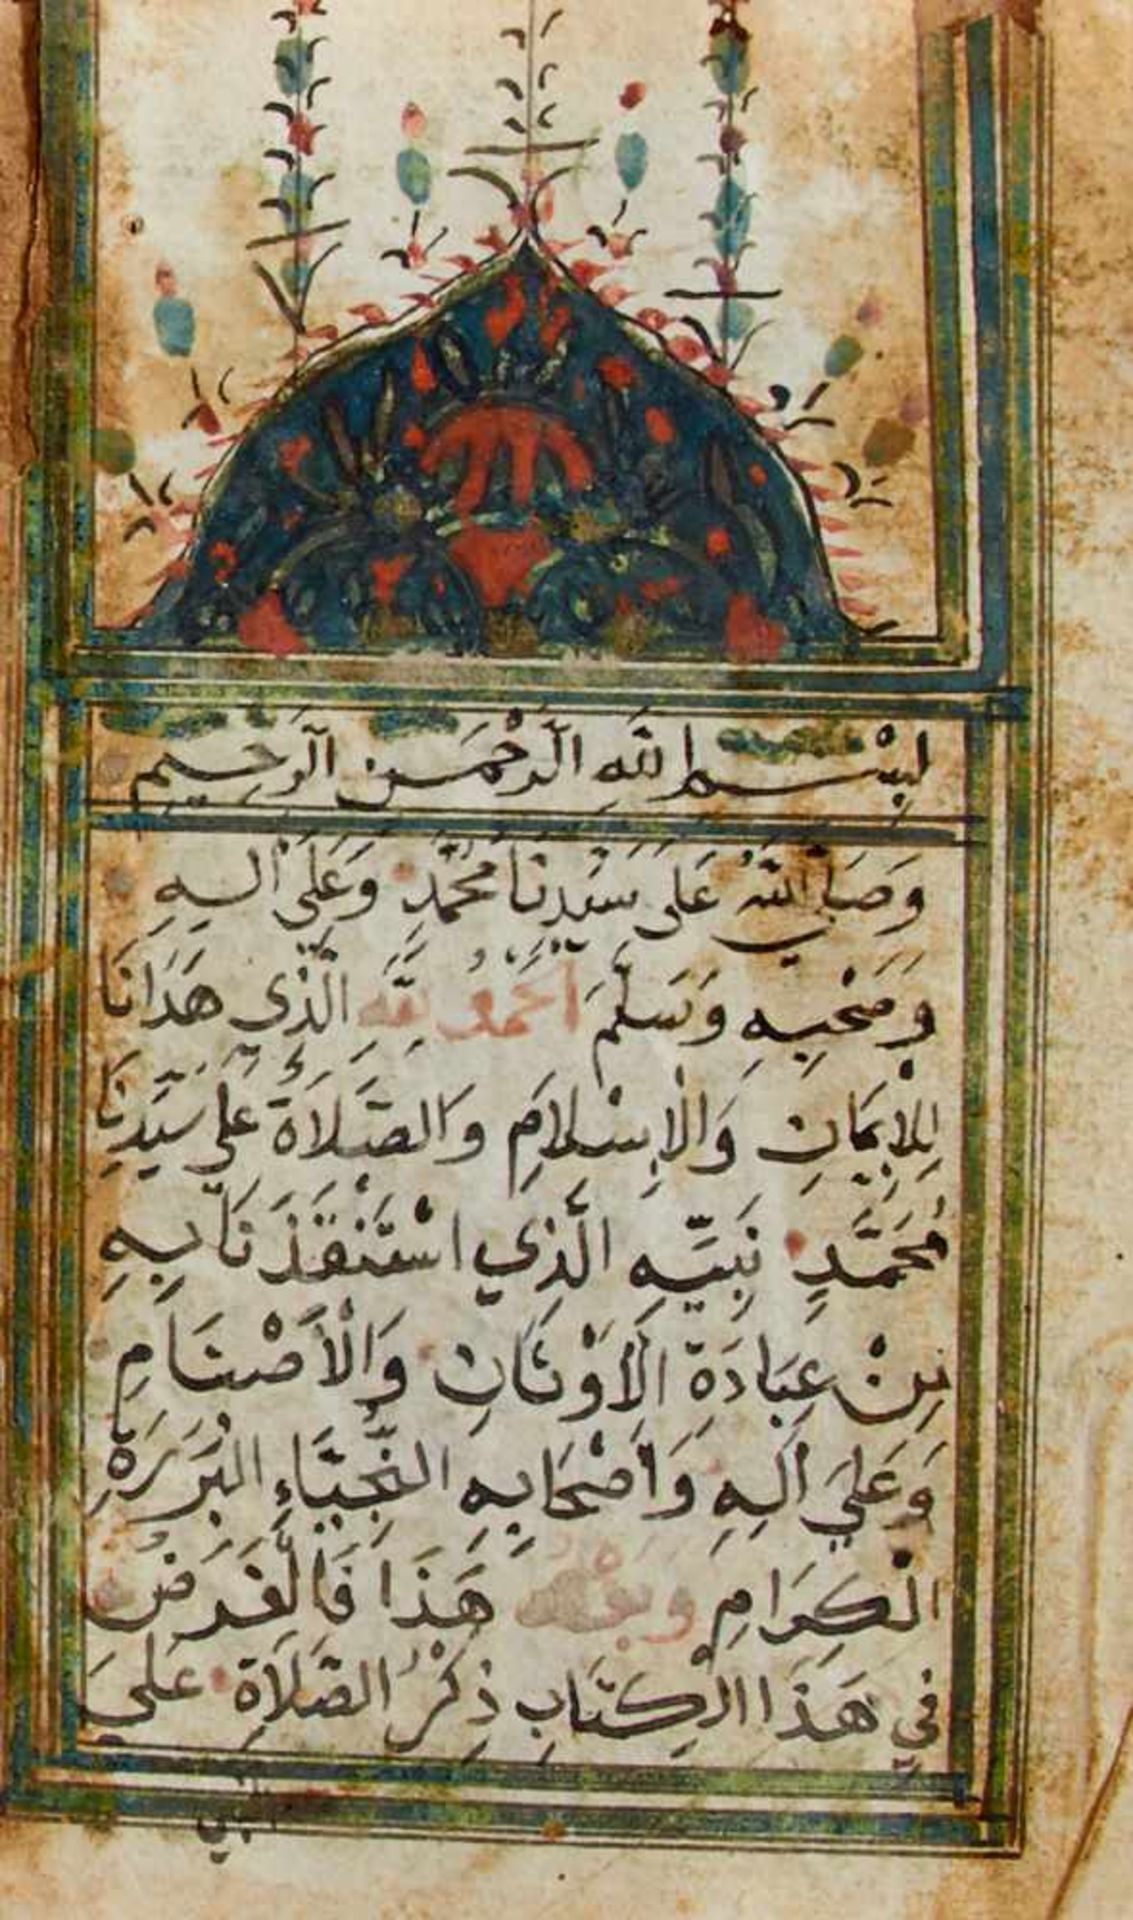 بِسْمِ اللَّهِ الرَّحْمَنِ الرَّحِيمِ
وَصَلَّى اللَّهُ عَلَى سَيِّدِنَا مُحَمَّدٍ وَعَلَى آلِهِ
وَصَحْبِهِ وَسَلَّمَ الْحَمْدُ لِلَّهِ الَّذِي هَدَانَا
لِلْإِيمَانِ وَالْإِسْلَامِ وَالصَّلَاةُ عَلَى سَيِّدِنَا
مُحَمَّدٍ نَبِيِّهِ الَّذِي اسْتَنْقَذَنَا بِهِ
مِنْ عِبَادَةِ الْأَوْثَانِ وَالْأَصْنَامِ
وَعَلَى آلِهِ وَأَصْحَابِهِ النُّجَبَاءِ الْبَرَرَةِ
الْكِرَامِ وَبَعْدَ هَذَا فَالْغَرَضُ
فِي هَذَا الْكِتَابِ ذِكْرُ الصَّلَاةِ عَلَى
النبي